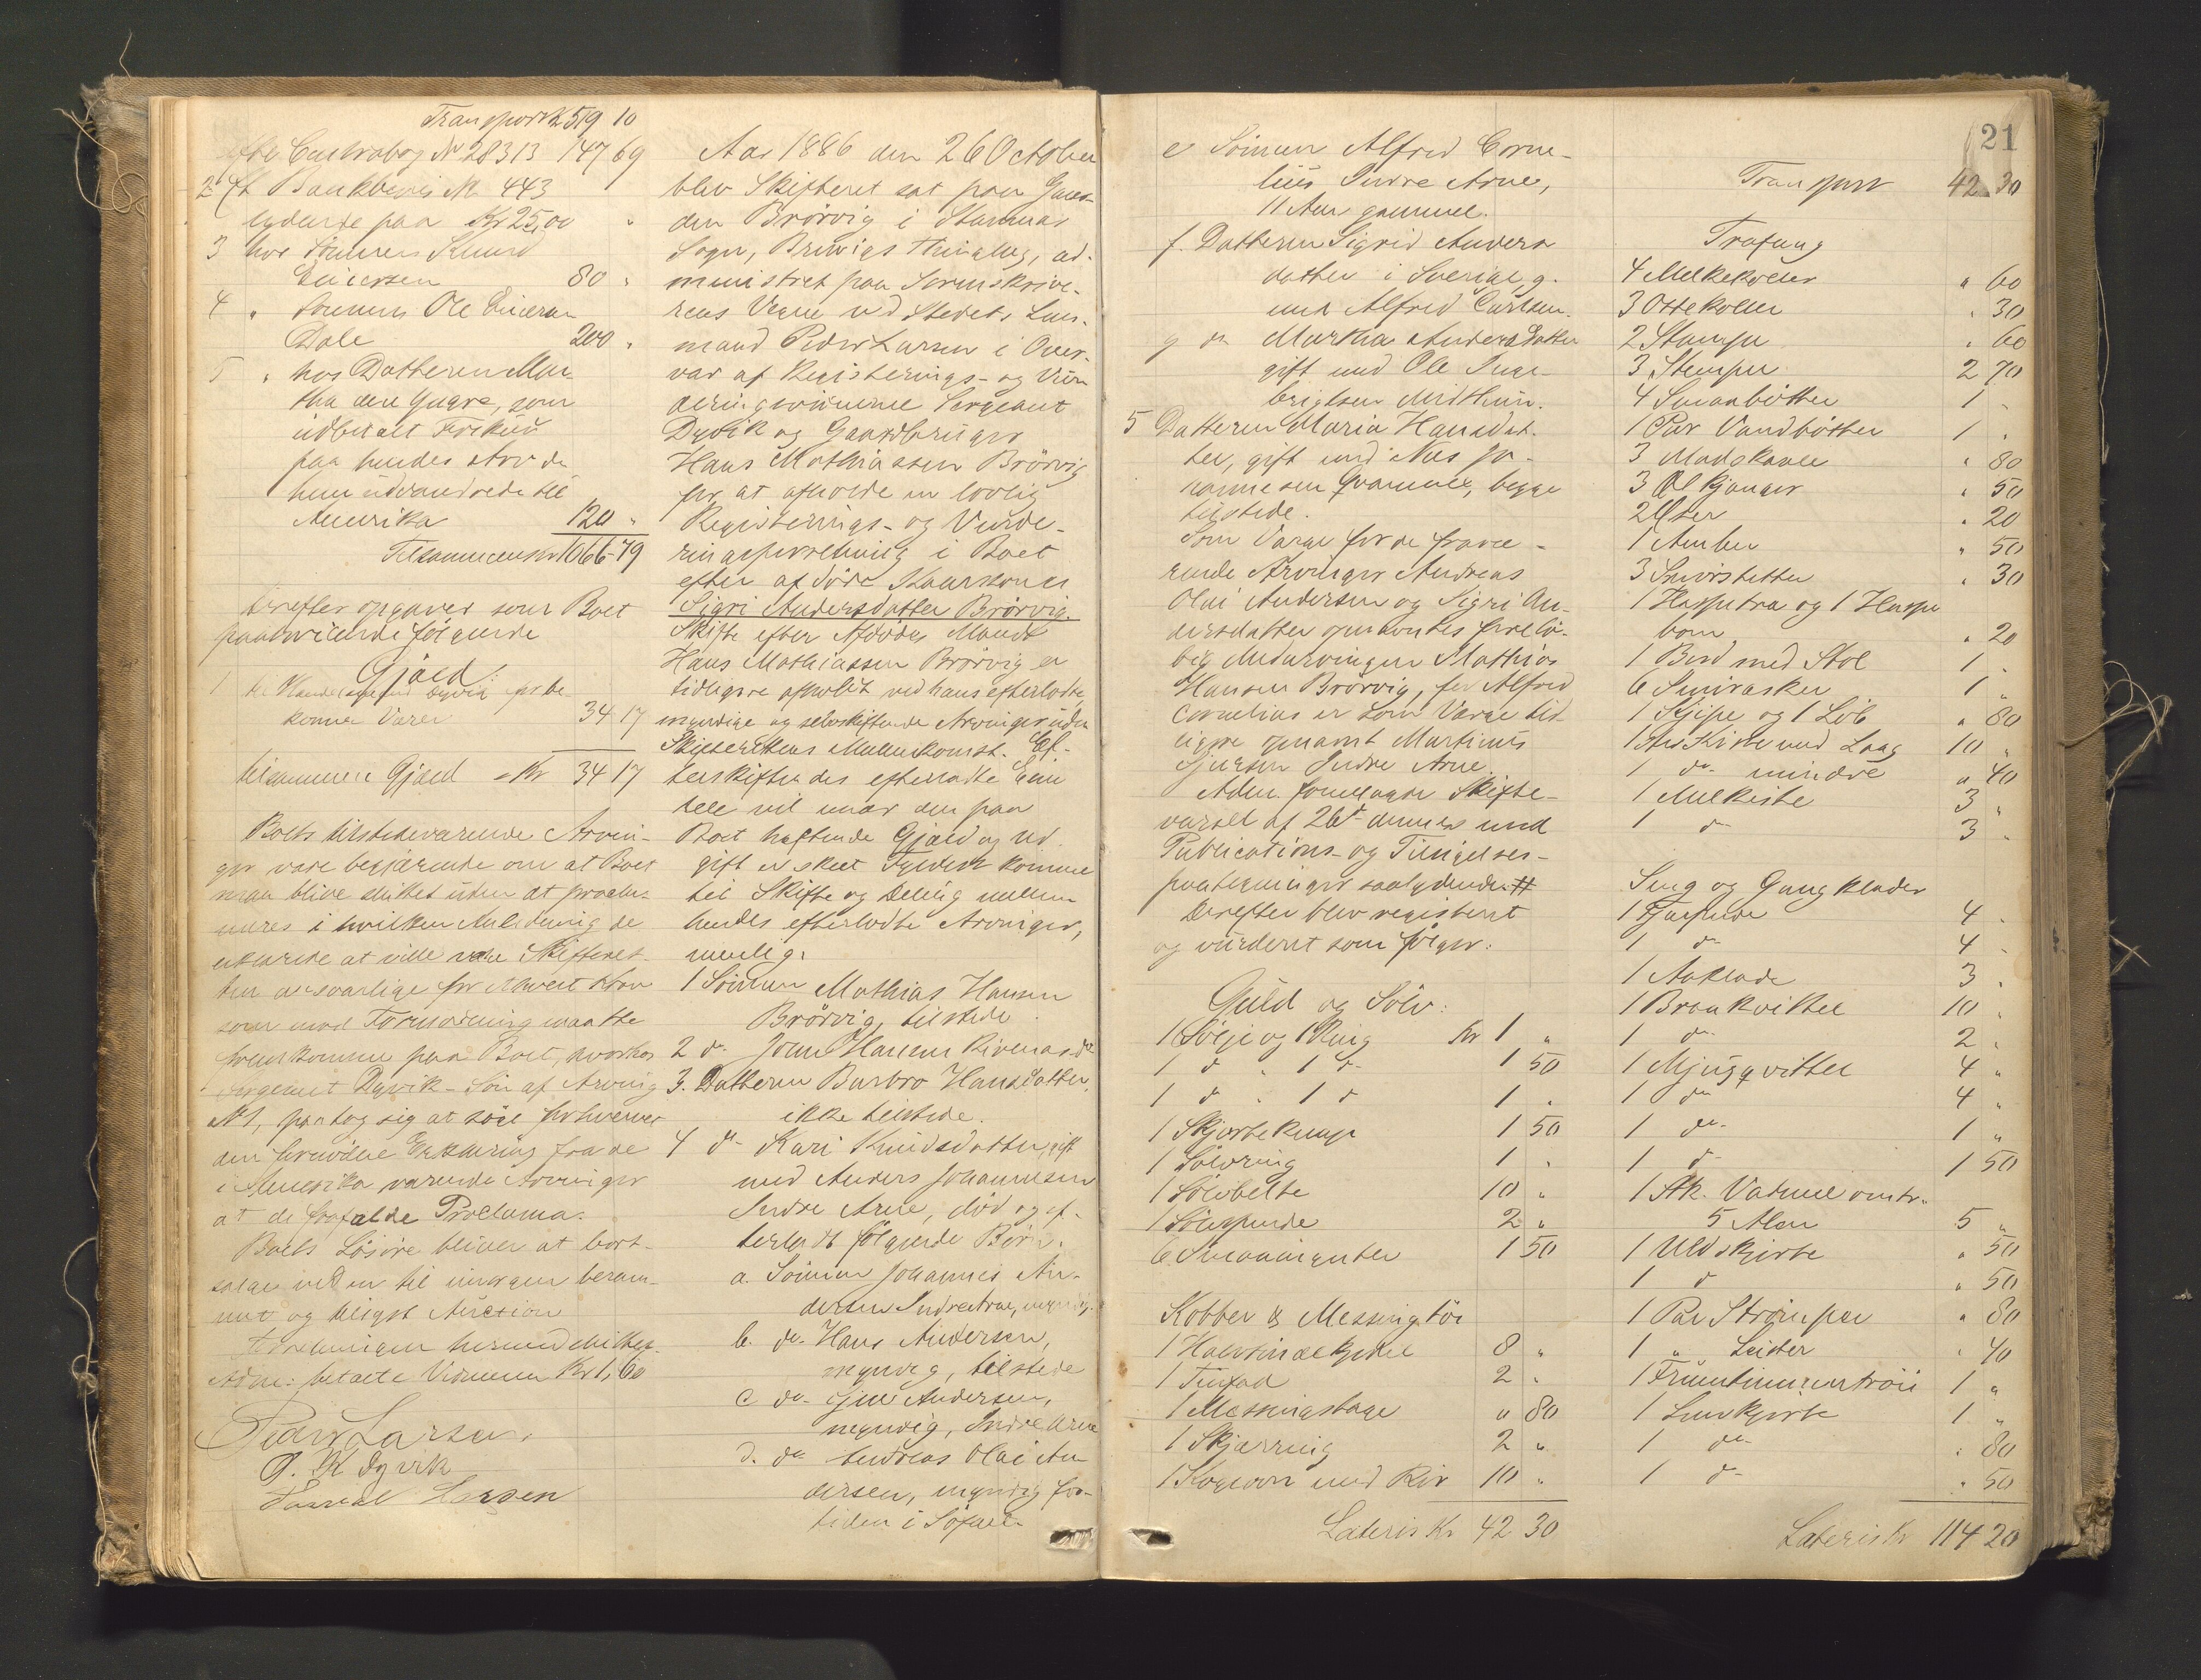 Transport 519 10
Contrabog No 28313 147 69
2 Bankbevis No 443
lydende paa Kr 25,00 "
3 hos Knud
Einersen 80 "
4 " Sønnen Ole Einersen
Dale 200 "
5 " hos Datteren Mar-
tha den yngre, som
udbetalt Forskud
paa hendes Arv da
hun udvandrede til
Amerika 120 "
Tilsammen Kr 1066-79
Derefter opgaves som Boet
paahvilende følgende
Gjæld
1 til Handelsmand Dyvik for be-
komne Varer 34 17
tilsammen Gjæld - Kr 34 17
Boets tilstedeværende Arvin-
ger vare begjærende om at Boet
maa blive sluttet uden at procla-
meres i hvilken Anledning de
erklærede at ville være Skifteret-
ten ansvarlige for ethvert Krav
som mod Formodning maatte
fremkomme paa Boet, hvorhos
Sergeant Dyvik - Søn af Arving
No 1, paatog sig at
den fornødne Erklæring fra de
i Amerika værende Arvinger
at de frafalde Proclama.
Boets Løsøre bliver at bort-
sælge ved en til imorgen beram-
met og Auction
Forretningen hermed sluttet.
Adm: betalte Vidnerne Kr 1,60
Peder Larsen.
O. K Dyvik
Larsen
Aar 1886 den 26 October
blev Skifteret sat paa Gaar-
den Brørvig i Stamnæs
Sogn, Bruvigs Thinglag, ad-
ministret paa Sorenskrive-
rens Vegne ved Stedets Lens-
mand Peder Larsen i Over-
vær af Registerings- og Vur-
deringsvidnerne Sergeant
Dyvik og Gaardbruger
Hans Mathiassen Brørvig
for at afholde en lovlig
Registerings- og Vurde-
ringsforretning i Boet
efter afdøde Kaarkone
Sigri Andersdatter Brørvig.
Skifte efter Afdødes Mand
Hans Mathiassen Brørvig er
tidligere afholdt ved hans efterladte
myndige og selvskiftende Arvinger uden
Skifterettens Mellemkomst. Ef-
terskiftendes efterladte Eien-
dele vil naar den paa
Boet heftende Gjæld og Ud-
gift er skeet Fyldest komme
til Skifte og Deling mellem
hendes efterladte Arvinger,
nemlig:
1 Sønnen Mathias Hansen
Brørvig, tilstede
2 do John Hansen Rivenæs do
3. Datteren Barbro Hansdatter
ikke tilstede.
4 do- Kari Knudsdatter, gift
med Anders Johannesen
Indre Arne, død og ef-
terladt følgende Børn.
a. Sønnen Johannes An-
dersen Indre Arne, myndig.
b. do- Hans Andersen,
myndig, tilstede
c do- Andersen,
myndig, Indre Arne
d. do Andreas Olai An-
dersen, myndig for-
tiden i Søfart
21
e Sønnen Alfred Corne-
lius Indre Arne,
11 Aar gammel.
f. Datteren Sigrid Anders-
datter i Sverige, g.
med Alfred Carlsen.
g do Martha Andersdatter
gift med Ole Inge-
brigtsen Midthun.
5 Datteren Maria Hansdat-
ter, gift med Nils Jo-
hannesen Qvamme, begge
tilstede.
Som Værge for de fravæ-
rende Arvinger Andreas
Olai Andersen og Sigri An-
dersdatter opnævntes forelø-
big Medarvingen Mathias
Hansen Brørvig, for Alfred
Cornelius er som Værge tid-
ligere opnævnt Martinus
Sjursen Indre Arne.
Adm. fremlagde Skifte-
varsel af 26de dennes med
Publications- og Tinglæses-
paategninger saalydende #
Derefter blev registeret
og vurderet som følger:
Guld og Sølv:
1 Sølje og 1 Ring Kr 1 "
1 do " 1 do 1 50
1 do " 1 do 1 "
1 Skjorteknap 1 50
1 Sølvring 1 "
1 Sølvbelte 10 "
1 Sølvspende 2 "
6 Smaamynter 1 50
Kobber & Messingtøi
1 Halvtøndekjedel 8 "
1 Tinfad 2 "
1 Messingstage " 80
1 Skjærring 2 "
1 Kogeovn med Rør 10 "
Lateris Kr 42 30
Transport 42 30
Træfang
4 Melkekoller " 60
3 Ottekoller " 30
2 Stampe " 60
3 Stamper 2 70
4 Smaabøtter 1 "
1 Par Vandbøtter 1 "
3 Madskaale " 80
3 Ølkjønger " 50
2 Øser " 20
1 Amber " 50
3 Smørbøtter " 30
1 Haspetræ og 1 Haspe-
bom " 20
1 Bord med Stol 1 "
6 Smørasker 1 "
1 Skjæpe og 1 Løb " 80
1 Kiste med Laag 10 "
1 do- mindre " 40
1 Melkiste 3 "
1 do 3 "
Seng og Gangklæder
1 Fjærpude 4 "
1 do 4 "
1 Aaklæde 3 "
1 Brankvittel 10 "
1 do 2 "
1 Mjugqvittel 4 "
1 do 4 "
1 do- 1 "
1 do 1 50
1 Stk. Vadmel omtr.
5 Alen 5 "
1 Uldskjorte " 50
1 do " 50
1 Par Strømper " 80
1 " Leister " 40
1 Fruentimmertrøie 1 "
1 Linskjorte 1 "
1 do- " 80
1 do- " 50
Lateris Kr 114 20